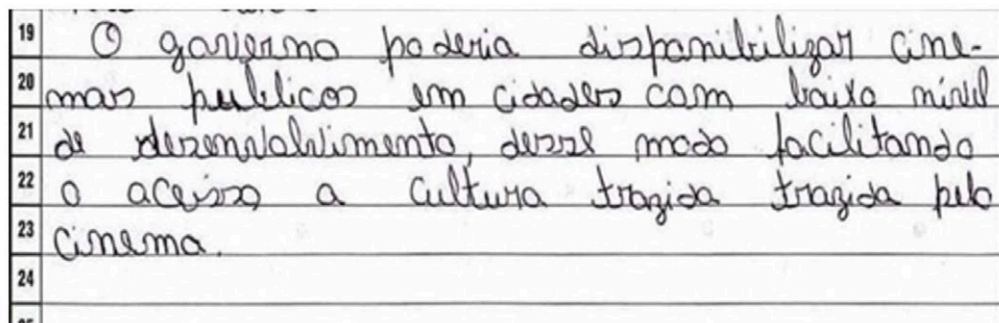 19 O governo poderia disponibilizar cine-
20 mas publicos em cidades com baixo nivel
21 de desenvolvimento, desse modo facilitando
22 o acesso a cultura trazida trazida pelo
23 cinema.
24